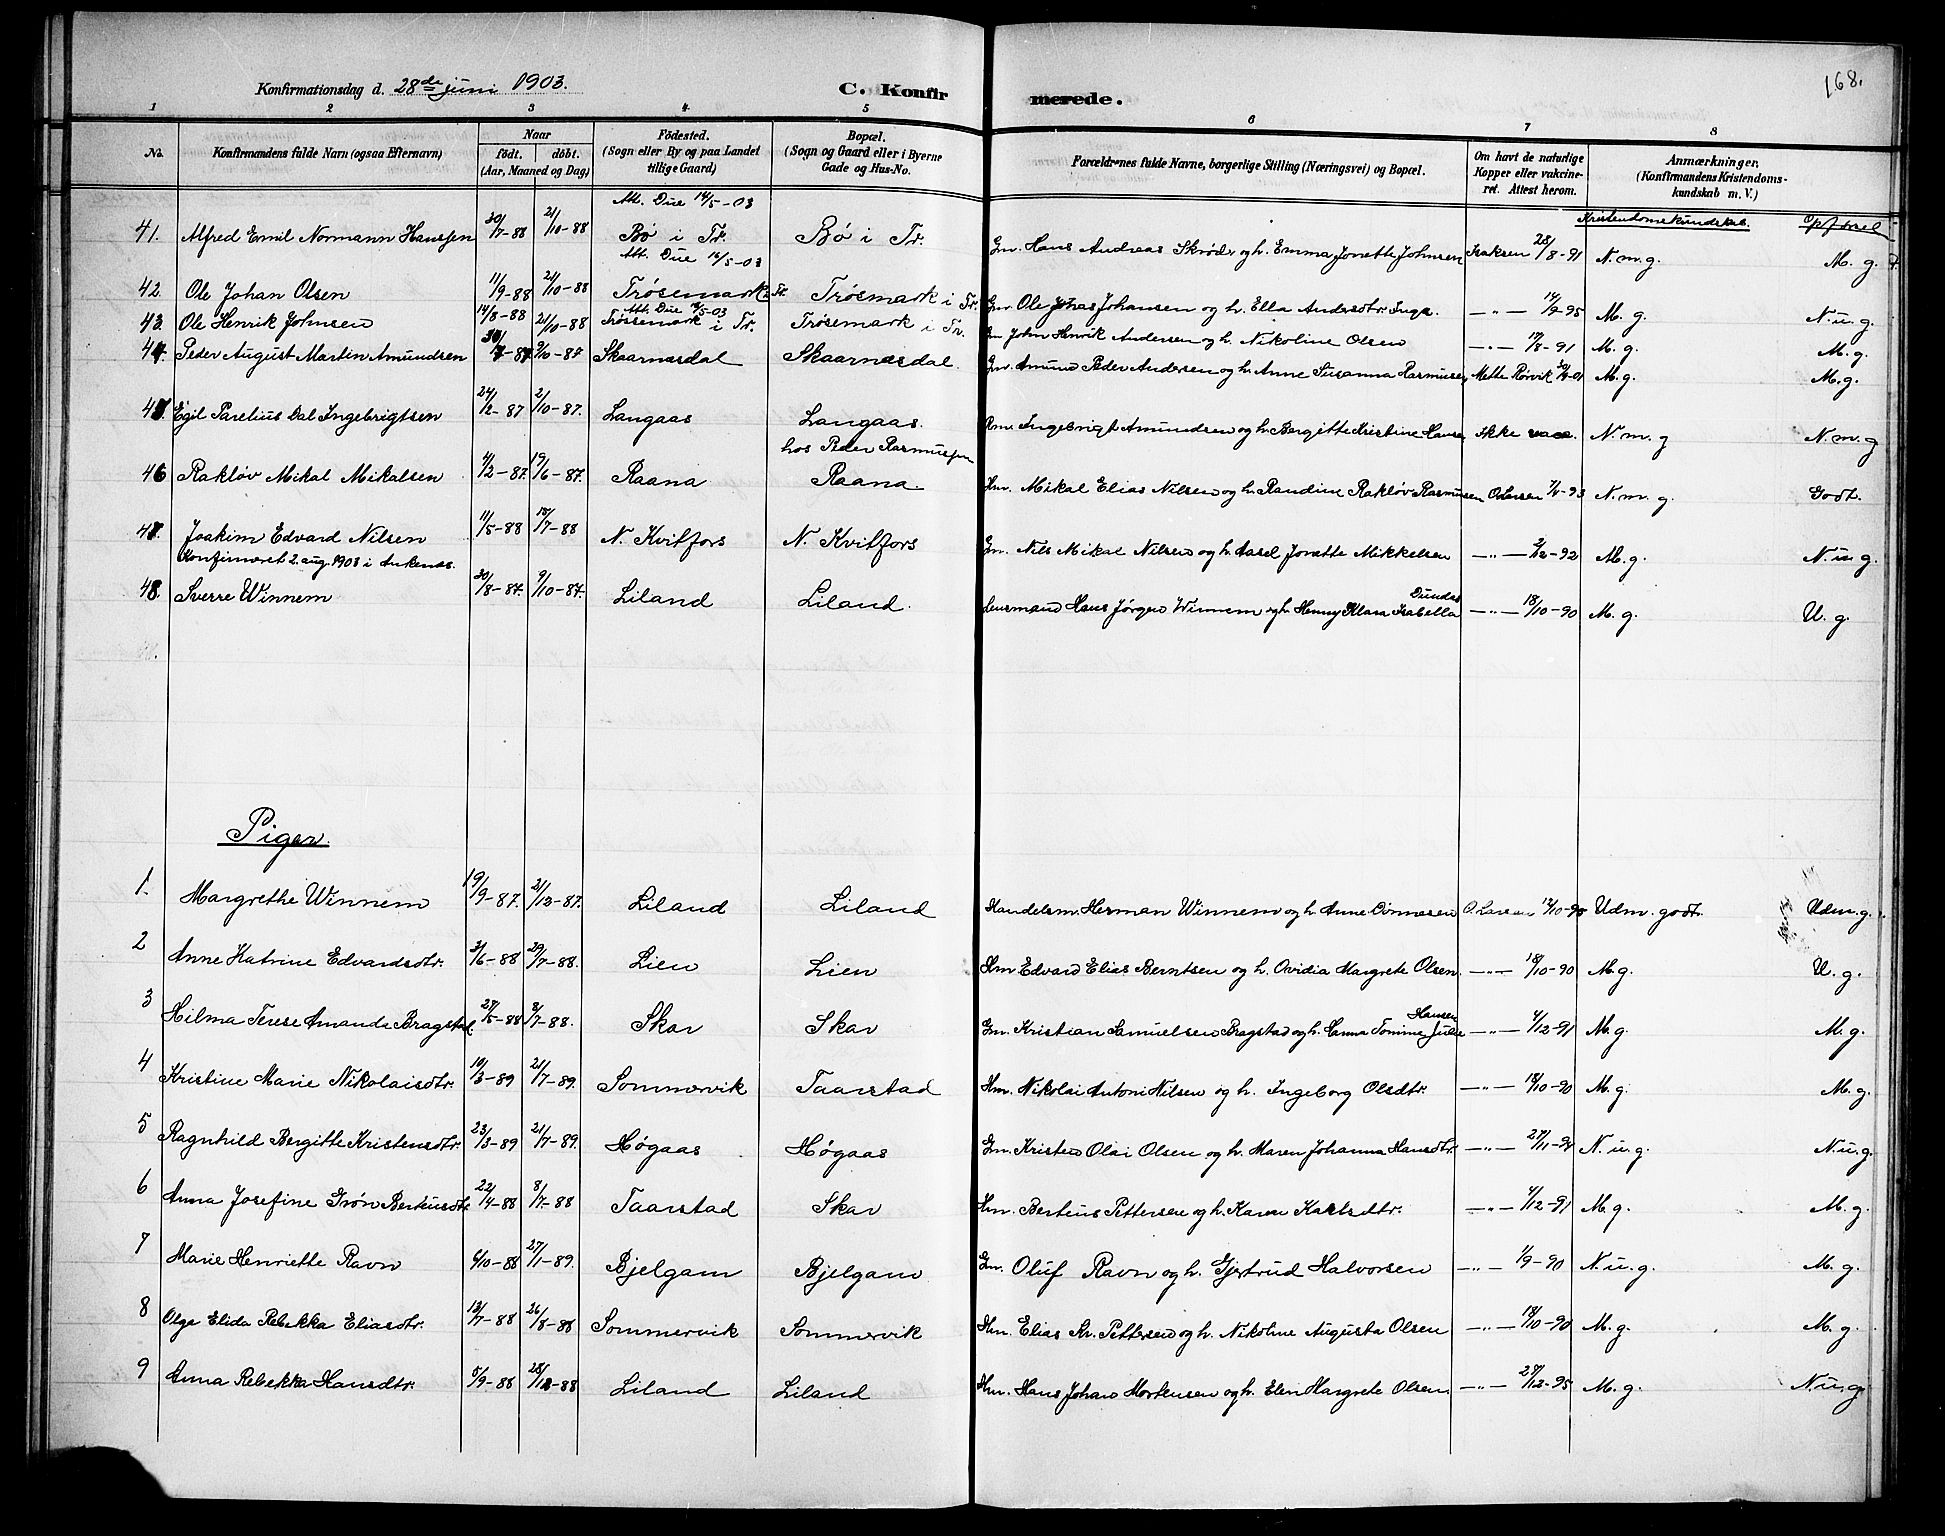 168.
Konfirmationsdag d. 28de juni 1903. C. Konfirmerede.
1 2 3 4 5 6 7 8
No. Konfirmandens fulde Navn (ogsaa Efternavn) Naar födt. döbt. (Aar, Maaned og Dag) Födested. (Sogn eller By og paa Landet tillige Gaard) Bopæl. (Sogn og Gaard eller i Byerne Gade og Hus-No. Forældrenes fulde Navne, borgerlige Stilling (Næringsvei) og Bopæl. Om havt de naturlige Kopper eller vakcineret. Attest herom. Anmærkninger, (Konfirmandens Kristendomskundskab m. V.)
Att. Due 14/5-03 Kristendomskundskab. Opførsel
41. Alfred Emil Normann Hanssen 30/7-88 21/10-88 Bö i Tr. Bö i Tr. Gm. Hans Andreas Skröder og h. Emma Jonette Johnsen Isaksen 28/8-91 N. m. g. M. g.
Att. Due 16/5-03
42. Ole Johan Olsen 11/9-88 21/10-88 Trösemark i Tr. Trösmark i Tr. Gm. Ole Johas Johansen og h. Ella Andersdtr. Inga. —"— 14/9-95 M. g. N. u. g.
Att. Due 16/5-03
43. Ole Henrik Johnsen 14/8-88 21/10-88 Trössemark i Tr. Trösemark i Tr. Gm John Henrik Andersen og h. Nikoline Olsen —"— 17/8-91 M. g. M. g.
44. Peder August Martin Amundsen 30/7-87 9/10-87 Skaarnæsdal Skaarnæsdal. Gm. Amund Peder Andersen og h. Anne Susanna Rasmusen Mette Rörvik M. g. M. g.
45. Egil Parelius Dal Ingebrigtsen 24/2-87 2/10-87. Langaas Langaas. Ingebrigt Amundsen og h. Bergitte Kristine Hansen Ikke vacc. N. m. g N. m. g
hos Peder Rasmussen
46 Rakløv Mikal Mikalsen 4/2-87. 19/6-87. Raana Raana. Hm. Mikal Elias Nilsen og h. Randine Rakløv Rasmusen O. Larsen N. m. g. Godt.
47. Joakim Edvard Nilsen 11/5-88 15/7-88 N. Kvitfors N. Kvitfors Gm. Nils Mikal Nilsen og h. Aasel Jonette Mikkelsen —"— 2/12-92 M. g. N. u. g.
Konfirmeret 2. aug. 1903 i Ankenæs.
48. Sverre Winnem 30/8-87. 9/10-87. Liland Liland. Lensmand Hans Jörgen Winnem og h. Henny Klara Isabella Dundas —"— 18/10-90 M. g. U. g.
Piger.
1. Margrethe Winnem 19/9-87. 21/12-87. Liland Liland Handelsm. Herman Winnem og h. Anne Dinnesen O. Larsen Udm. godt. Udm. g.
2 Anne Katrine Edvardsdtr. 3/6-88 29/7-88. Lien Lien Hm Edvard Elias Berntsen og h. Ovidia Margrete Olsen. —"— 18/10-90 M. g. U. g.
3 Hilma Terese Amanda Bragstad 27/5-88 8/7-88. Skar Skar Gm. Kristian Samuelsen Bragstad og h. Hanna Tomine Julie Hansen —"— 4/12-91 M. g. M. g.
4 Kristine Marie Nikolaisdtr. 19/3-89 21/7-89. Sommervik Taarstad Hm. Nikolai Antoni Nilsen og h. Ingeborg Olsdtr. —"— 18/10-90 M. g. M. g.
5 Ragnhild Bergitte Kristensdtr. 23/3-89 21/7-89. Høgaas Høgaas Gm. Kristen Olai Olsen og h. Maren Johanna Hansdtr. —"— 27/11-91 N. u. g. N. u. g.
6 Anna Josefine Grön Berteusdtr 22/4-88 8/7-88 Taarstad Skar Hm. Berteus Pettersen og h. Karen Karlsdtr. —"— 4/12-91 M. g. M. g.
7 Marie Henriette Ravn 6/10-88 27/1-89. Bjelgam Bjelgam Gm. Oluf Ravn og h. Gjertrud Halvorsen —"— 1/9-90 N. u. g. M. g.
8 Olga Elida Rebekka Eliasdtr. 13/7-88 26/8-88 Sommervik Sommervik Hm. Elias Kr. Pettersen og h. Nikoline Augusta Olsen —"— 18/10-90 M. g. M. g.
9 Anna Rebekka Hansdtr. 5/9-88 28/12-88 Liland Liland Hm. Hans Johan Mortensen og h. Elen Margrete Olsen. —"— 27/12-95 M. g. N. u. g